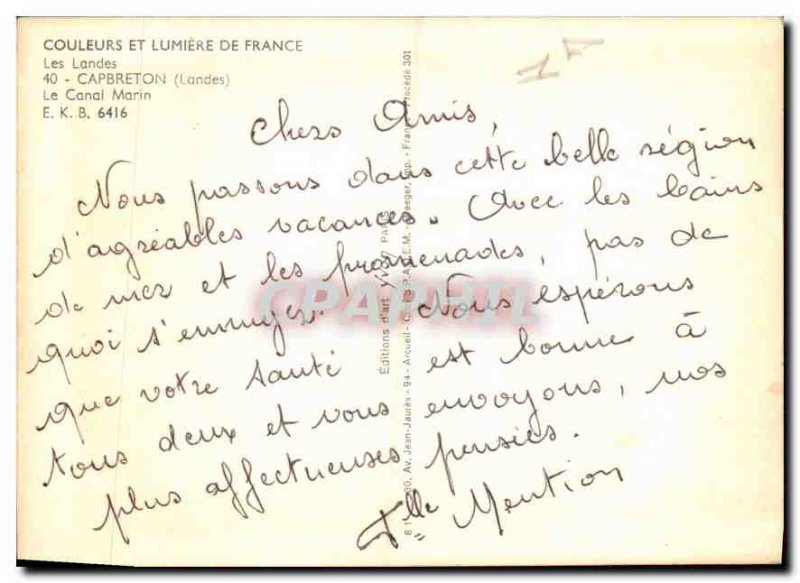 COULEURS ET LUMIÈRE DE FRANCE
Les Landes
40 - CAPBRETON (Landes)
Le Canal Marin
E. K. B. 6416
Chers Amis,
Nous passons dans cette belle région
d'agréables vacances. Avec les bains
de mer et les promenades, pas de
quoi s'ennuyer. Nous espérons
que votre santé est bonne à
tous deux et vous envoyons, nos
plus affectueuses pensées.
Flle Mention
Editions d'art YVON PARIS
Av. Jean-Jaurès - 94 - Arcueil - Procédé 301
CPAPHIL